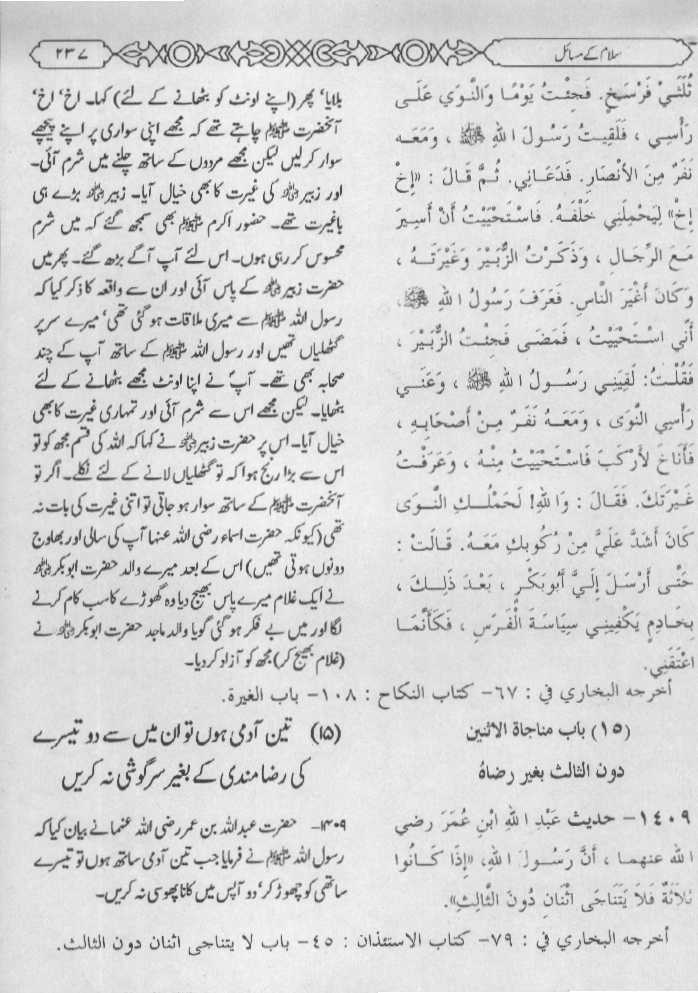 سلام کے مسائل
۲۳۷
ثُلُثَيْ فَرْسَخٍ. فَجِئْتُ يَوْمًا وَالنَّوَى عَلَى
رَأْسِي ، فَلَقِيتُ رَسُولَ اللهِ ﷺ ، وَمَعَه
نَفَرٌ مِنَ الأَنْصَارِ. فَدَعَانِي. ثُمَّ قَالَ : «إِخْ
إِخْ» لِيَحْمِلَنِي خَلْفَهُ. فَاسْتَحْيَيْتُ أَنْ أَسِيرَ
مَعَ الرِّجَالِ ، وَذَكَرْتُ الزُّبَيْرَ وَغَيْرَتَهُ ،
وَكَانَ أَغْيَرَ النَّاسِ. فَعَرَفَ رَسُولُ اللهِ ﷺ،
أَنِّي اسْتَحْيَيْتُ ، فَمَضَى فَجِئْتُ الزُّبَيْرَ ،
فَقُلْتُ: لَقِيَنِي رَسُولُ اللهِ ﷺ ، وَعَلَى
رَأْسِي النَّوَى ، وَمَعَهُ نَفَرٌ مِنْ أَصْحَابِهِ ،
فَأَنَاخَ لأَرْكَبَ فَاسْتَحْيَيْتُ مِنْهُ ، وَعَرَفْتُ
غَيْرَتَكَ. فَقَالَ : وَاللهِ! لَحَمْلُكِ النَّوَى
كَانَ أَشَدَّ عَلَيَّ مِنْ رُكُوبِكِ مَعَهُ. قَالَتْ :
حَتَّى أَرْسَلَ إِلَيَّ أَبُوبَكْرٍ ، بَعْدَ ذَلِكَ ،
بِخَادِمٍ يَكْفِينِي سِيَاسَةَ الْفَرَسِ ، فَكَأَنَّمَا
اعْتَقَنِي.
بلایا‘ پھر (اپنے اونٹ کو بٹھانے کے لئے) کہا۔ اخ‘ اخ‘
آنحضرت ﷺ چاہتے تھے کہ مجھے اپنی سواری پر اپنے پیچھے
سوار کر لیں لیکن مجھے مردوں کے ساتھ چلنے میں شرم آئی۔
اور زبیرؓ کی غیرت کا بھی خیال آیا۔ زبیرؓ بڑے ہی
باغیرت تھے۔ حضور اکرم ﷺ بھی سمجھ گئے کہ میں شرم
محسوس کر رہی ہوں۔ اس لئے آپ آگے بڑھ گئے۔ پھر میں
حضرت زبیرؓ کے پاس آئی اور ان سے واقعہ کا ذکر کیا کہ
رسول اللہ ﷺ سے میری ملاقات ہو گئی تھی‘ میرے سر پر
گٹھلیاں تھیں اور رسول اللہ ﷺ کے ساتھ آپ کے چند
صحابہ بھی تھے۔ آپ نے اپنا اونٹ مجھے بٹھانے کے لئے
بٹھایا۔ لیکن مجھے اس سے شرم آئی اور تمہاری غیرت کا بھی
خیال آیا۔ اس پر حضرت زبیرؓ نے کہا کہ اللہ کی قسم مجھ کو تو
اس سے بڑا رنج ہوا کہ تو گٹھلیاں لانے کے لئے نکلے۔ اگر تو
آنحضرت ﷺ کے ساتھ سوار ہو جاتی تو اتنی غیرت کی بات نہ
تھی (کیونکہ حضرت اسماء رضی اللہ عنہا آپ کی سالی اور بھاوج
دونوں ہوتی تھیں) اس کے بعد میرے والد حضرت ابوبکرؓ
نے ایک غلام میرے پاس بھیج دیا وہ گھوڑے کا سب کام کرنے
لگا اور میں بے فکر ہو گئی گویا والد ماجد حضرت ابوبکرؓ نے
(غلام بھیج کر) مجھ کو آزاد کر دیا۔
أخرجه البخاري في : ٦٧- كتاب النكاح : ١٠٨- باب الغيرة.
(١٥) باب مناجاة الاثنين
دون الثالث بغير رضاهُ
(۱۵) تین آدمی ہوں تو ان میں سے دو تیسرے
کی رضامندی کے بغیر سرگوشی نہ کریں
١٤٠٩- حديث عَبْدِ اللهِ ابْنِ عُمَرَ رضي
الله عنهما ، أَنَّ رَسُولَ اللهِ، «إِذَا كَانُوا
ثَلاَثَةٌ فَلاَ يَتَنَاجَى اثْنَانِ دُونَ الثَّالِثِ».
۱۴۰۹۔ حضرت عبداللہ بن عمر رضی اللہ عنہما نے بیان کیا کہ
رسول اللہ ﷺ نے فرمایا جب تین آدمی ساتھ ہوں تو تیسرے
ساتھی کو چھوڑ کر‘ دو آپس میں کانا پھوسی نہ کریں۔
أخرجه البخاري في : ٧٩- كتاب الاستئذان : ٤٥- باب لا يتناجى اثنان دون الثالث.